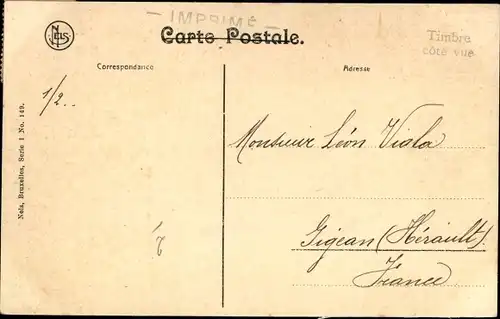 — IMPRIMÉ —
Carte Postale.
Timbre
côté vue
Correspondance
Adresse
1/2..
Monsieur Léon Viala
Gigean (Hérault).
France
Nels, Bruxelles, Serie 1 No. 149.